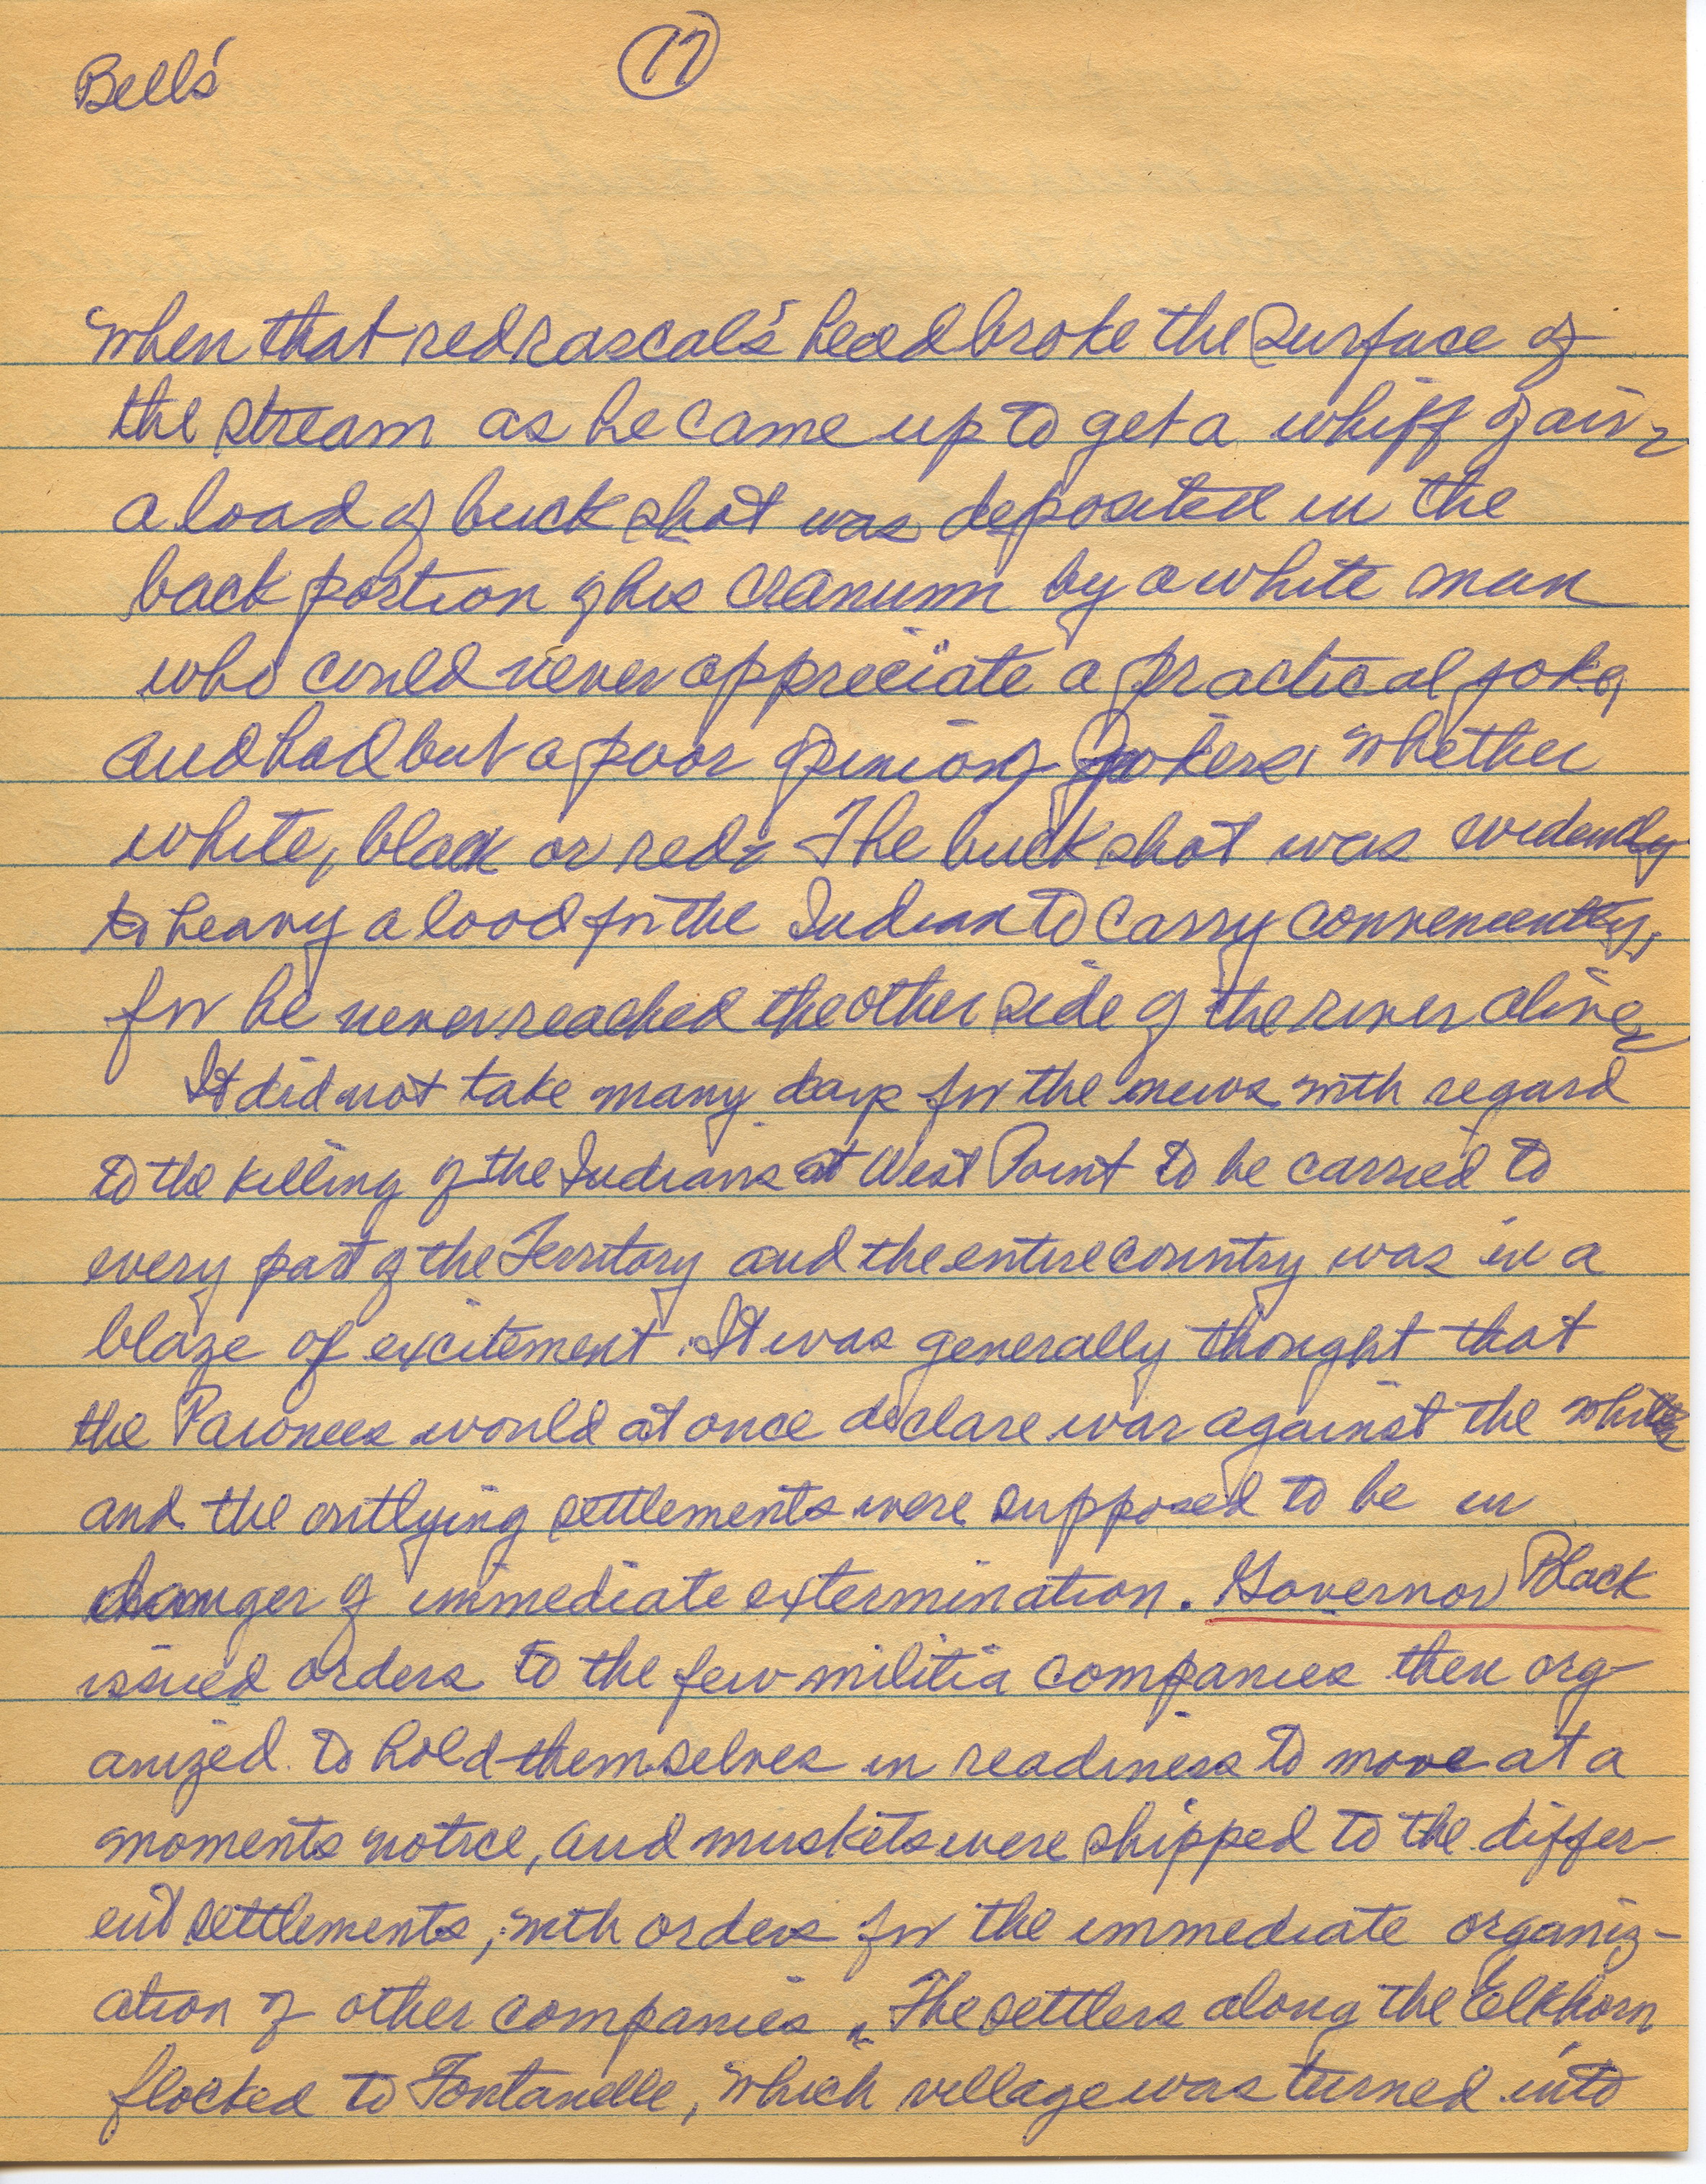 Bell's
17
when that red rascal's head broke the surface of
the stream as he came up to get a whiff of air,
a load of buck shot was deposited in the
back portion of his cranum by a white man
who could never appreciate a practical joke,
and had but a poor opinion of jokers, whether
white, black or red. The buck shot was evidently
to heavy a load for the Indian to carry conveniently,
for he never reached the other side of the river alive,
It did not take many days for the news with regard
to the killing of the Indians at West Point to be carried to
every part of the Territory and the entire country was in a
blaze of excitement. It was generally thought that
the Pawnees would at once declare war against the whites
and the outlying settlements were supposed to be in
danger of immediate extermination. Governor Black
issued orders to the few militia companies then org-
anized to hold themselves in readiness to move at a
moments notice, and muskets were shipped to the differ-
ent settlements, with orders for the immediate organiz-
ation of other companies. The settlers along the Elkhorn
flocked to Fontanelle, which village was turned into